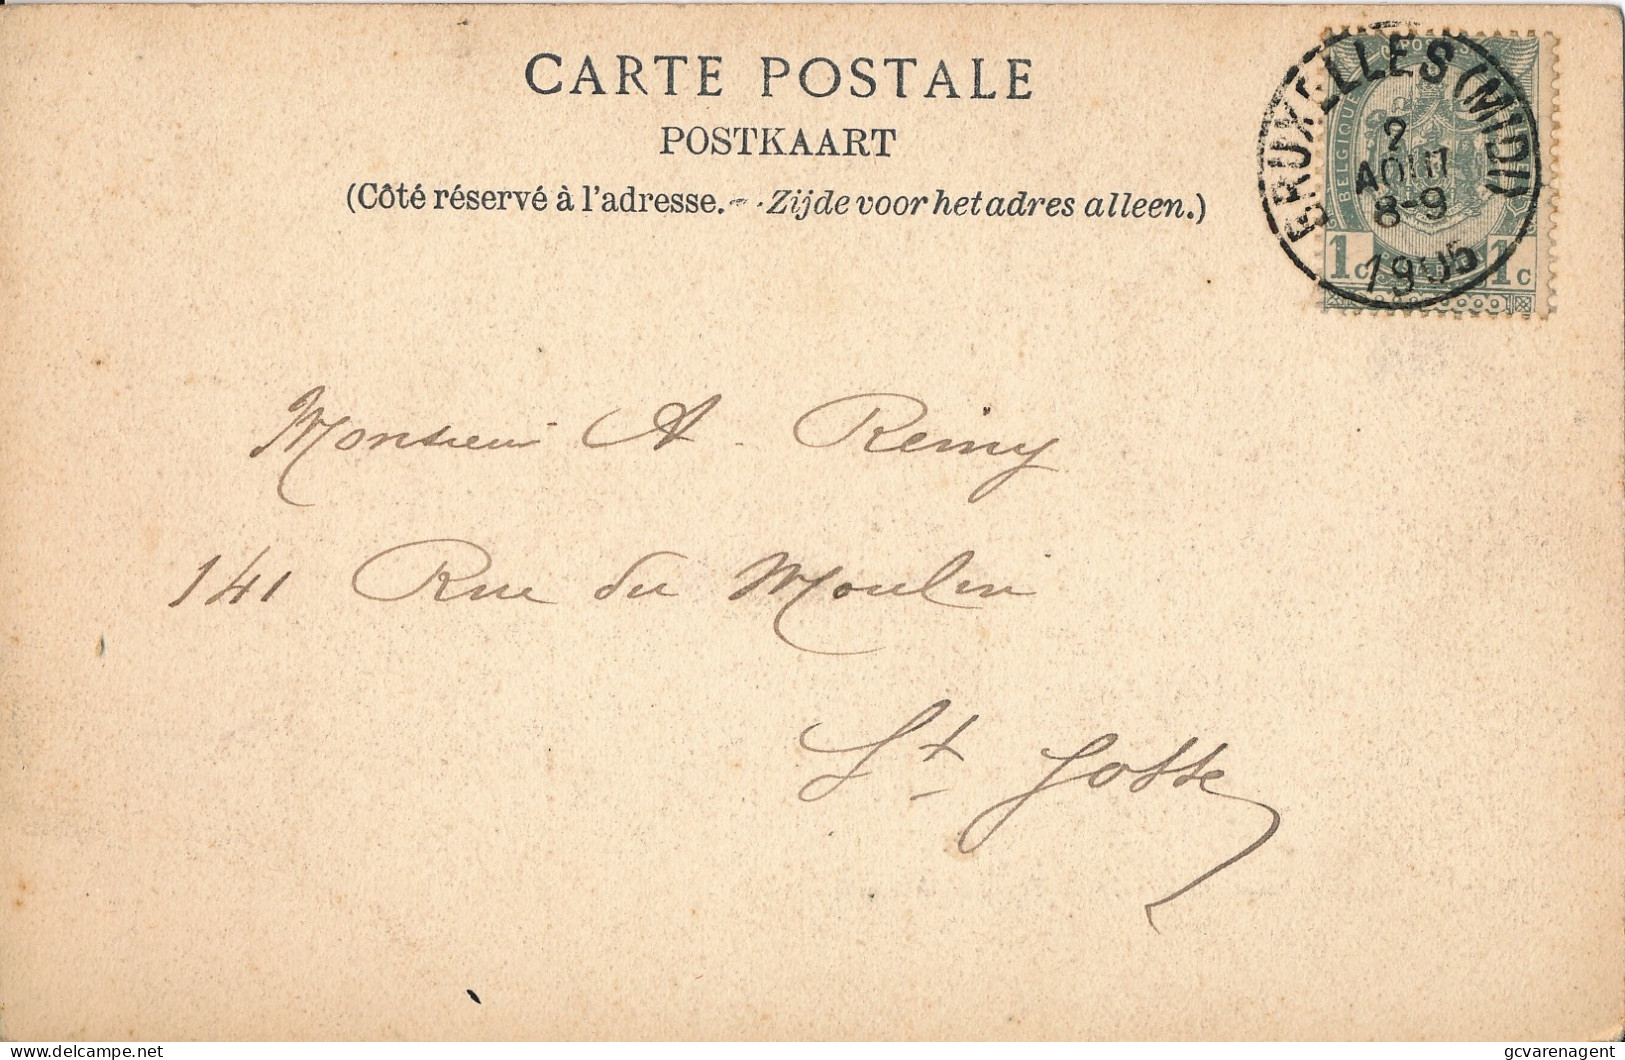 CARTE POSTALE
POSTKAART
(Côté réservé à l'adresse. - Zijde voor het adres alleen.)
BRUXELLES (MIDI)
2
AOUT
8-9
1905
BELGIQUE
1c 1c
Monsieur A. Remy
141 Rue du Moulin
St Josse
delcampe.net
gcvarenagent